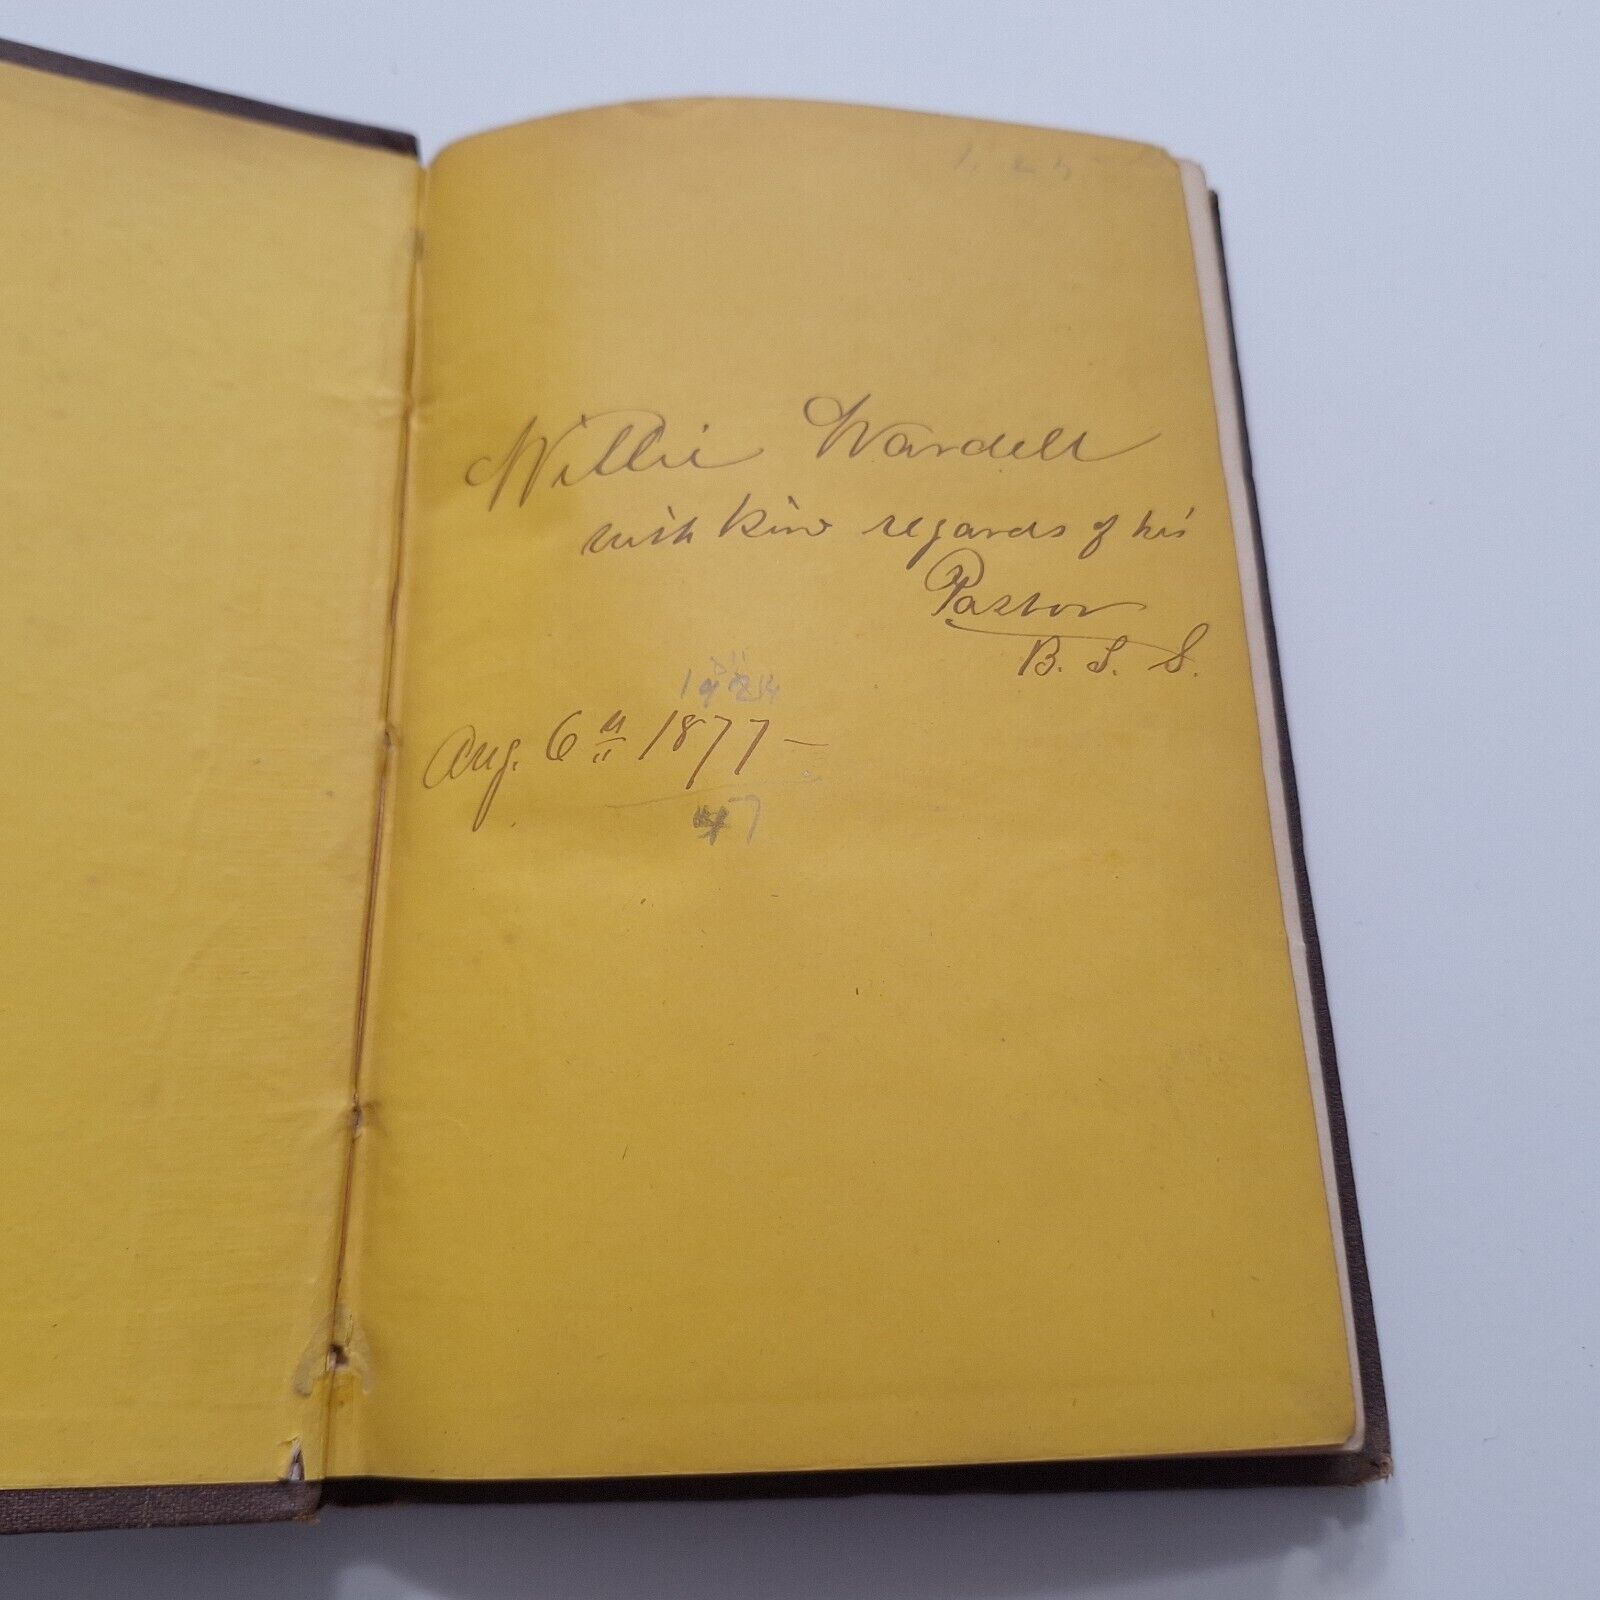 1.25
Willie Wardell
with kind regards of his
Pastor
B. S. S.
1924
Aug. 6th 1877 —
47